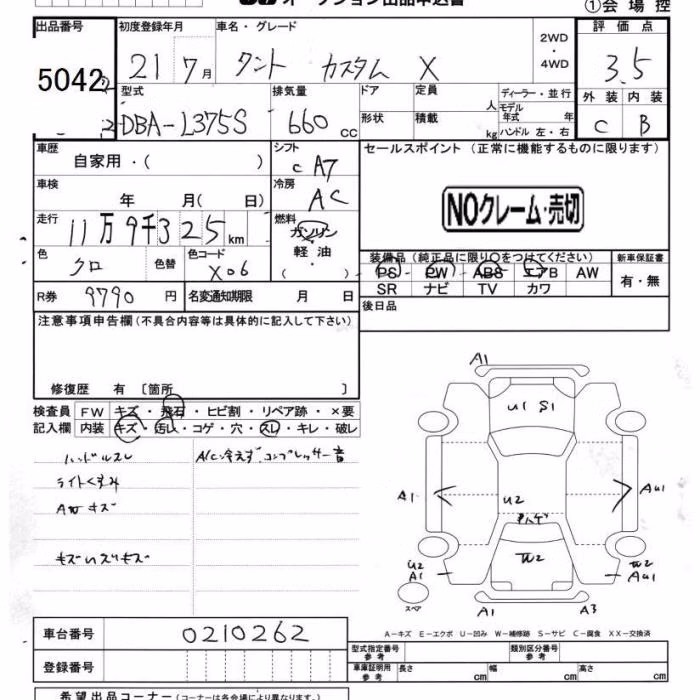 オークション出品申込書 ①会場控
出品番号 初度登録年月 車名・グレード 2WD・4WD 評価点
5042 21 7月 タント カスタム X 3.5
型式 排気量 ドア 定員 人 ディーラー・並行 外装 内装
DBA-L375S 660cc 形状 積載 kg モデル年式 年 ハンドル 左・右 C B
車歴 自家用・( ) シフト C A7 セールスポイント (正常に機能するものに限ります)
車検 年 月( 日) 冷房 AC NOクレーム・売切
走行 11万9千325km 燃料 ガソリン 軽油 ( )
色 クロ 色替 色コード X06 装備品 (純正品に限り○をつけてください) 新車保証書
PS PW ABS エアB AW 有・無
SR ナビ TV カワ
R券 9790円 名変通知期限 月 日 後日品
注意事項申告欄 (不具合内容等は具体的に記入して下さい)
修復歴 有 〔箇所 〕
検査員 FW キズ・飛石・ヒビ割・リペア跡・×要
記入欄 内装 キズ・汚レ・コゲ・穴・スレ・キレ・破レ
ハンドルスレ A/C冷えず.コンプレッサー音
ライトくすみ
キズ
A1
U1 S1
A1 U2 AU1
W2
U2 A1 AU1
スペア A1 A3
A-キズ E-エクボ U-凹み W-補修跡 S-サビ C-腐食 XX-交換済
車台番号 0210262 型式指定番号 参考 類別区分番号 参考
登録番号 車庫証明用 参考 長さ cm 幅 cm 高さ cm
希望出品コーナー (コーナーは各会場により異なります。)